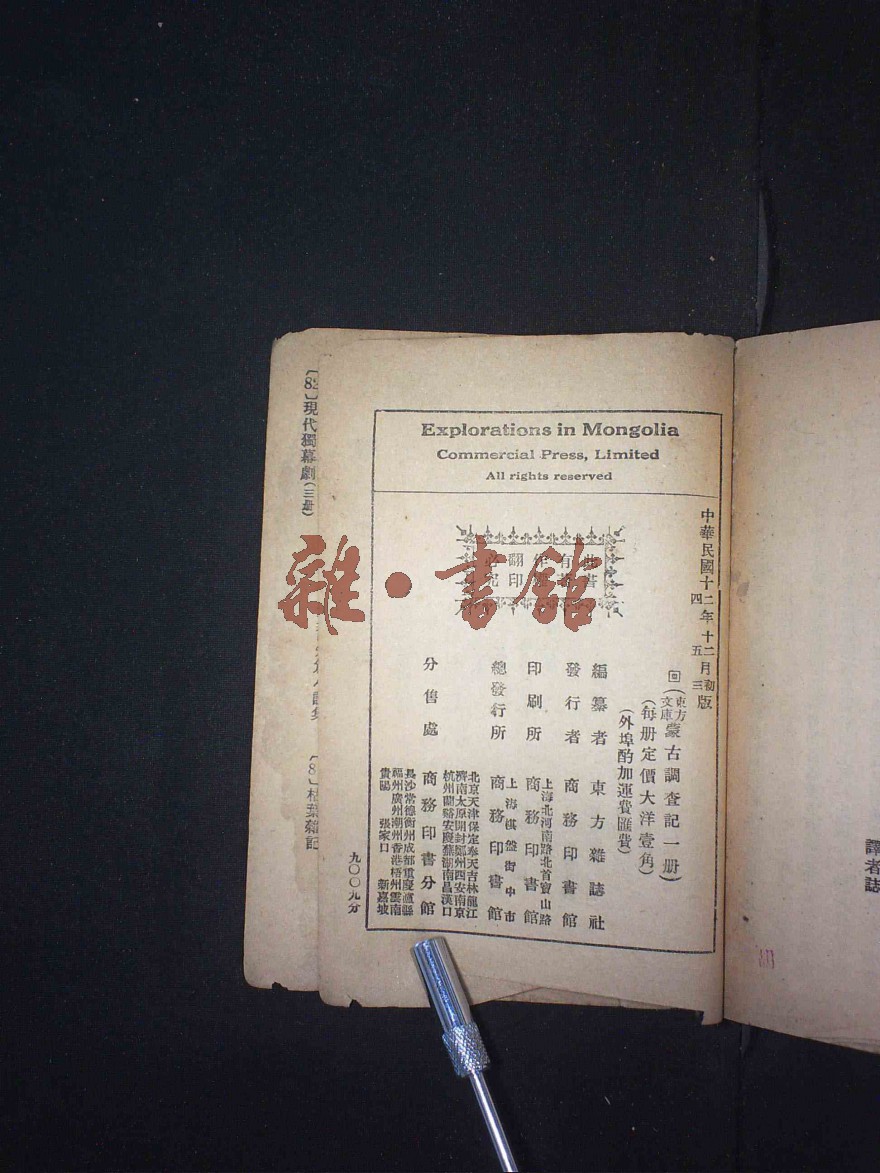 Explorations in Mongolia
Commercial Press, Limited
All rights reserved
中華民國十二年十二月初版
四 五 三
回(東方文庫)蒙古調查記一册)
(每册定價大洋壹角)
(外埠酌加運費匯費)
此書
有著
作權
翻印
必究
編纂者 東方雜誌社
發行者 商務印書館
上海北河南路北首寶山路
印刷所 商務印書館
上海棋盤街中市
總發行所 商務印書館
北京天津保定奉天吉林龍江
濟南太原開封鄭州西安南京
杭州蘭谿安慶蕪湖南昌漢口
分售處 商務印書分館
長沙常德衡州成都重慶瀘縣
福州廣州潮州香港梧州雲南
貴陽 張家口 新嘉坡
九〇〇九分
〔82〕現代獨幕劇(三册)
枯葉雜記
譯者誌
雜·書館